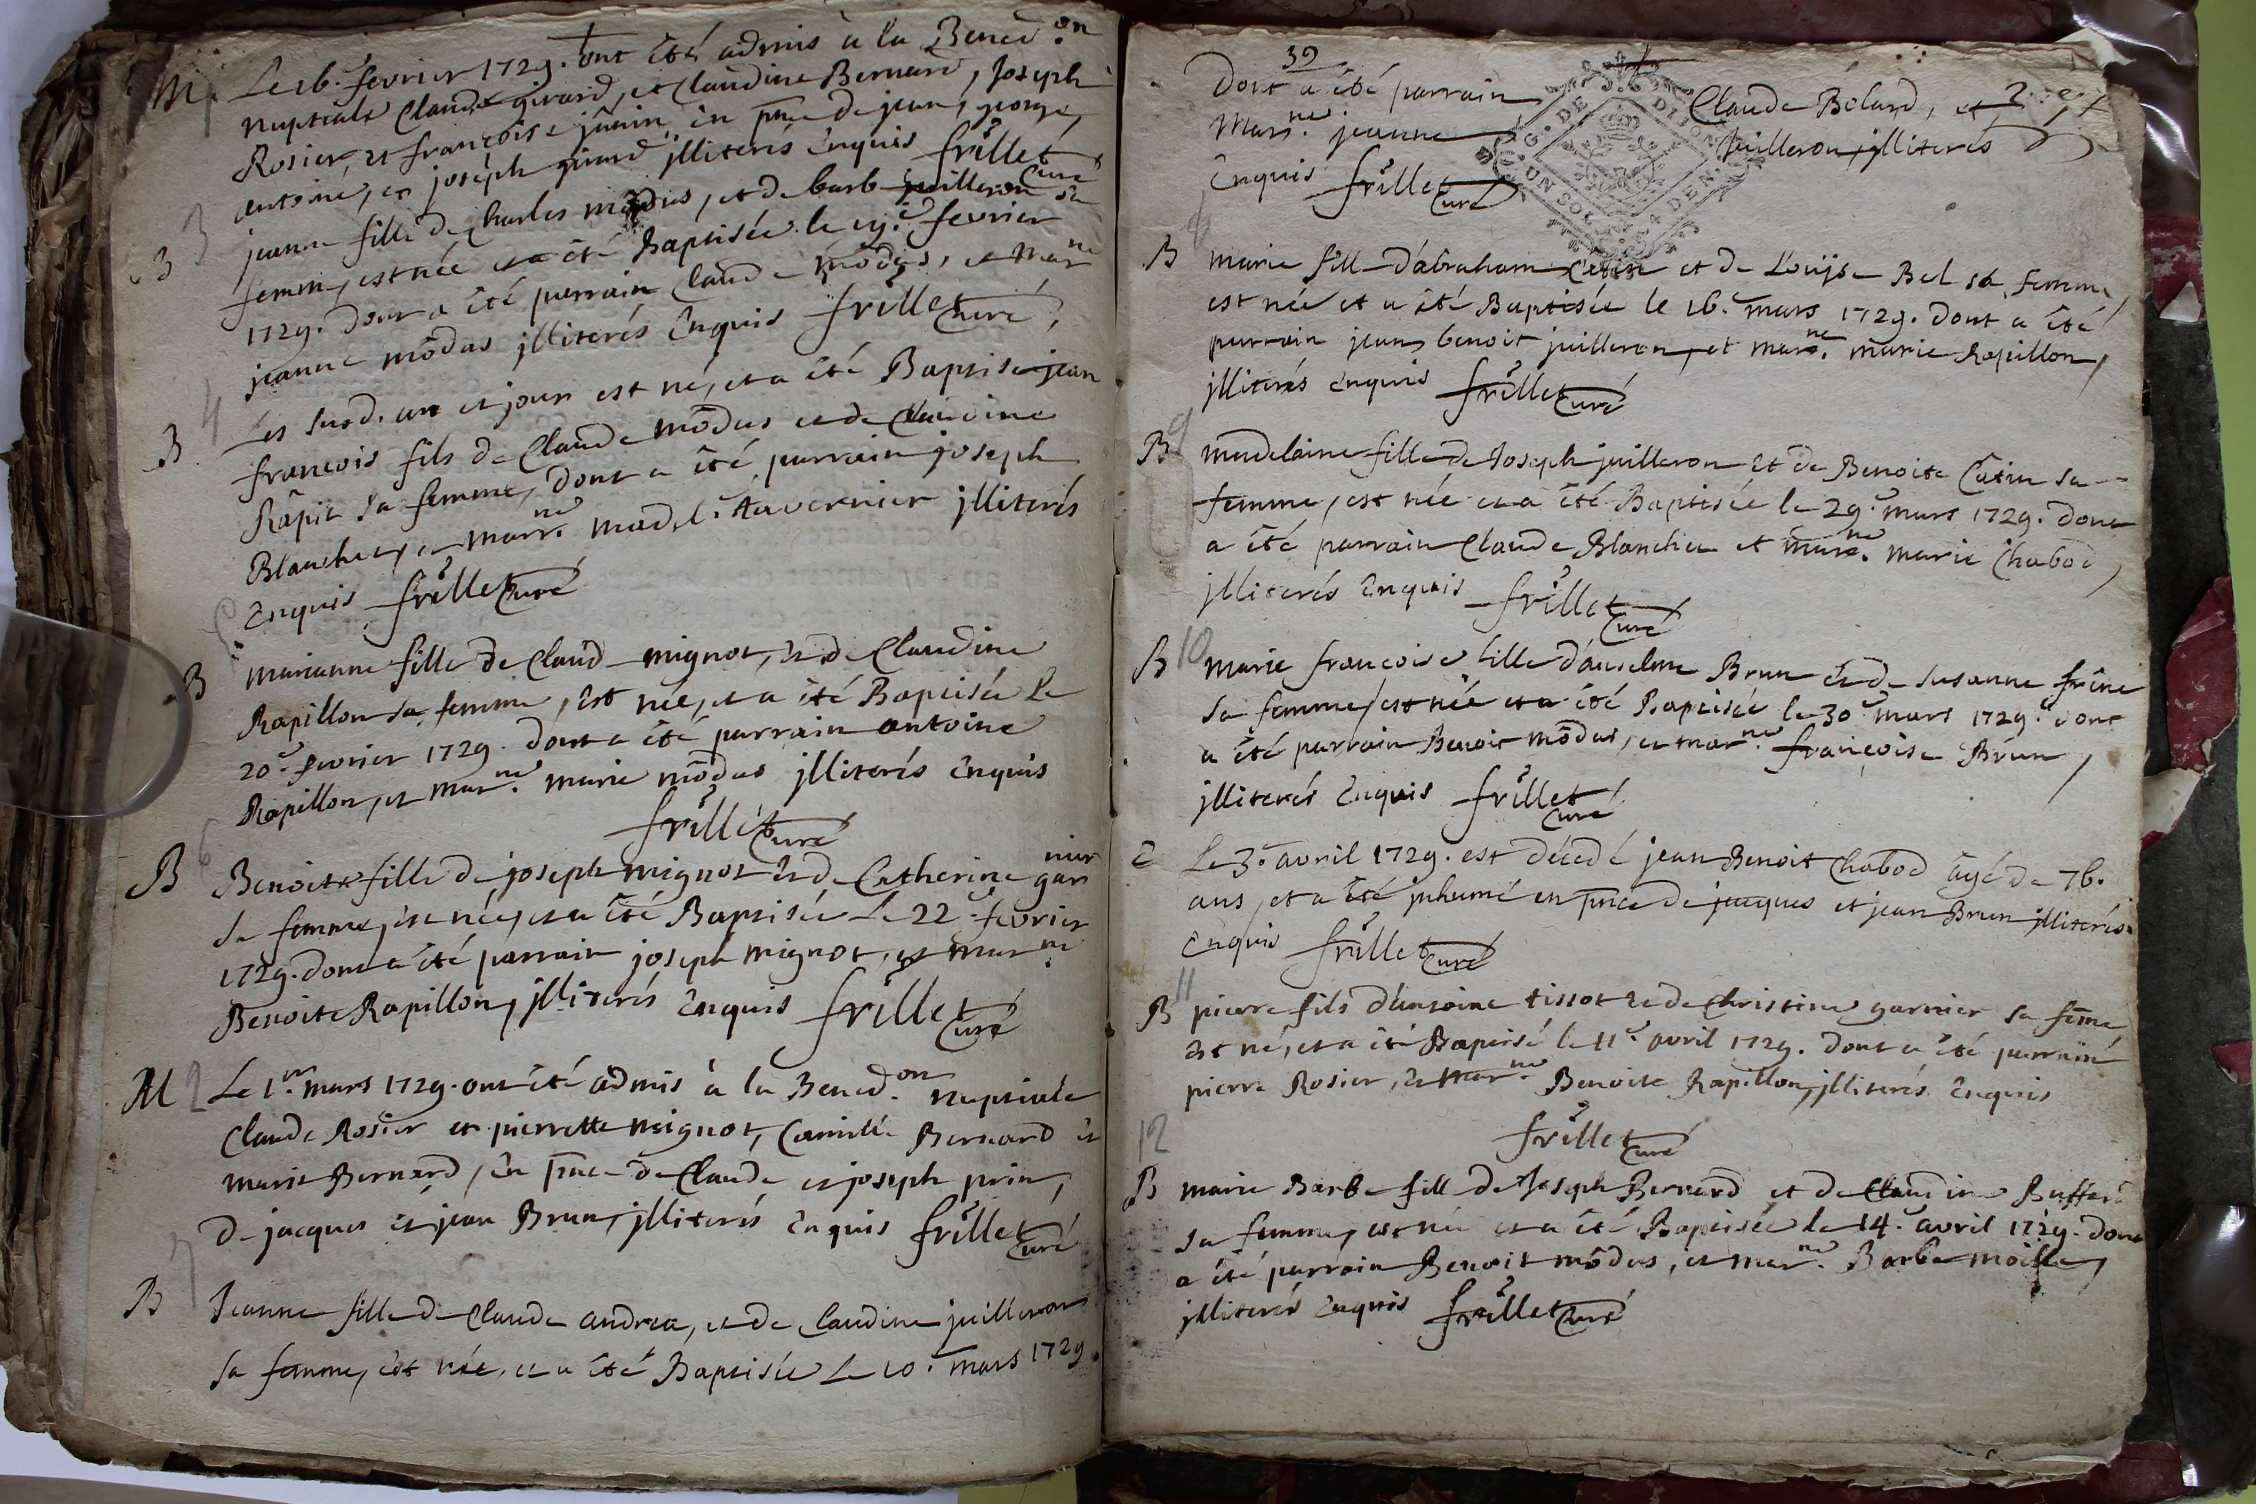 M Le 16.e fevrier 1729. ont été admis a la Bened.on
nuptiale Claude girard, et Claudine Bernard, Joseph
Rosier, et françoise janin en pnce de jean, george,
antoine, et joseph girard illiterés Enquis frillet Curé
3 B jeanne fille de Charles môdas, et de barbe juilleron sa
femme, est née et a été Baptisée le 19.e fevrier
1729. dont a été parrain Claude môdas, et mar.ne
jeanne môdas jlliterés Enquis frillet Curé
4 B Les susd. an et jour est né, et a été Baptisé jean
francois fils de Claude môdas et de Claudine
Rapin sa femme, dont a été parrain joseph
Blanchet, et marr.ne madel. tavernier jlliterés
Enquis frillet Curé
5 B marianne fille de Claude mignot, et de Claudine
Rapillon sa femme, Est née, et a été Baptisée Le
20.e fevrier 1729. dont a été parrain antoine
Rapillon, et mar.ne marie môdas jlliterés Enquis
frillet Curé
6 B Benoite fille de joseph mignot et de Catherine garnier
sa femme, est née, et a été Baptisée Le 22.e fevrier
1729. dont a été parrain joseph mignot, et mar.ne
Benoite Rapillon, jlliterés Enquis frillet Curé
M 2 Le 1.er mars 1729. ont été admis à la Bened.on nuptiale
Claude Rosier et pierrette mignot, Camille Bernard et
marie Bernard, en pnce de Claude et joseph prin,
de jacques et jean Brun, jlliterés Enquis frillet Curé
7 B Jeanne fille de Claude andrea, et de Claudine juilleron
sa femme, est née, et a été Baptisée Le 10.e mars 1729.
39
dont a été parrain Claude Bélard, et
mar.ne jeanne juilleron, jlliterés
Enquis frillet Curé
G. DE DIJON
UN SOL 4 DEN.
8 B marie fille d'abraham Catin et de Louÿse Bel sa femme,
est née et a été Baptisée le 16.e mars 1729. dont a été
parrain jean benoit juilleron, et mar.ne marie Rapillon,
jlliterés Enquis frillet Curé
9 B madelaine fille de Joseph juilleron et de Benoite Catin sa
femme, est née et a été Baptisée le 29.e mars 1729. dont
a été parrain Claude Blanchet et mar.ne marie Chabod,
jlliterés Enquis frillet Curé
10 B marie françoise fille d'anselme Brun et de susanne frêne
sa femme, est née et a été Baptisée le 30.e mars 1729. dont
a été parrain Benoit môdas, et mar.ne françoise Brun,
jlliterés Enquis frillet Curé
Le 3.e avril 1729. est décedé jean Benoit Chabod âgé de 76.
ans, et a été jnhumé en pnce de jacques et jean Brun jlliterés
Enquis frillet Curé
11 B pierre fils d'antoine tissot et de Christine garnier sa femme
est né, et a été Baptisé le 11.e avril 1729. dont a été parrain
pierre Rosier, et mar.ne Benoite Rapillon, jlliterés Enquis
frillet Curé
12
B marie Barbe fille de Joseph Bernard et de Claudine Buffard
sa femme, est née et a été Baptisée le 14.e avril 1729. dont
a été parrain Benoit môdas, et mar.ne Barbe moille,
jlliterés Enquis frillet Curé